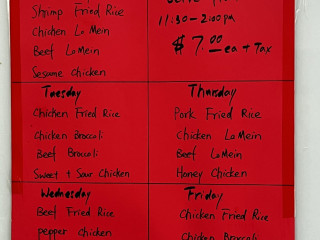 Shrimp Fried Rice
Chicken Lo Mein
Beef Lo Mein
Sesame Chicken
11:30 - 2:00 pm
$7.00 ea + Tax
Tuesday
Chicken Fried Rice
Chicken Broccoli
Beef Broccoli
Sweet + Sour Chicken
Thursday
Pork Fried Rice
Chicken Lo Mein
Beef Lo Mein
Honey Chicken
Wednesday
Beef Fried Rice
pepper chicken
Friday
Chicken Fried Rice
Chicken Broccoli